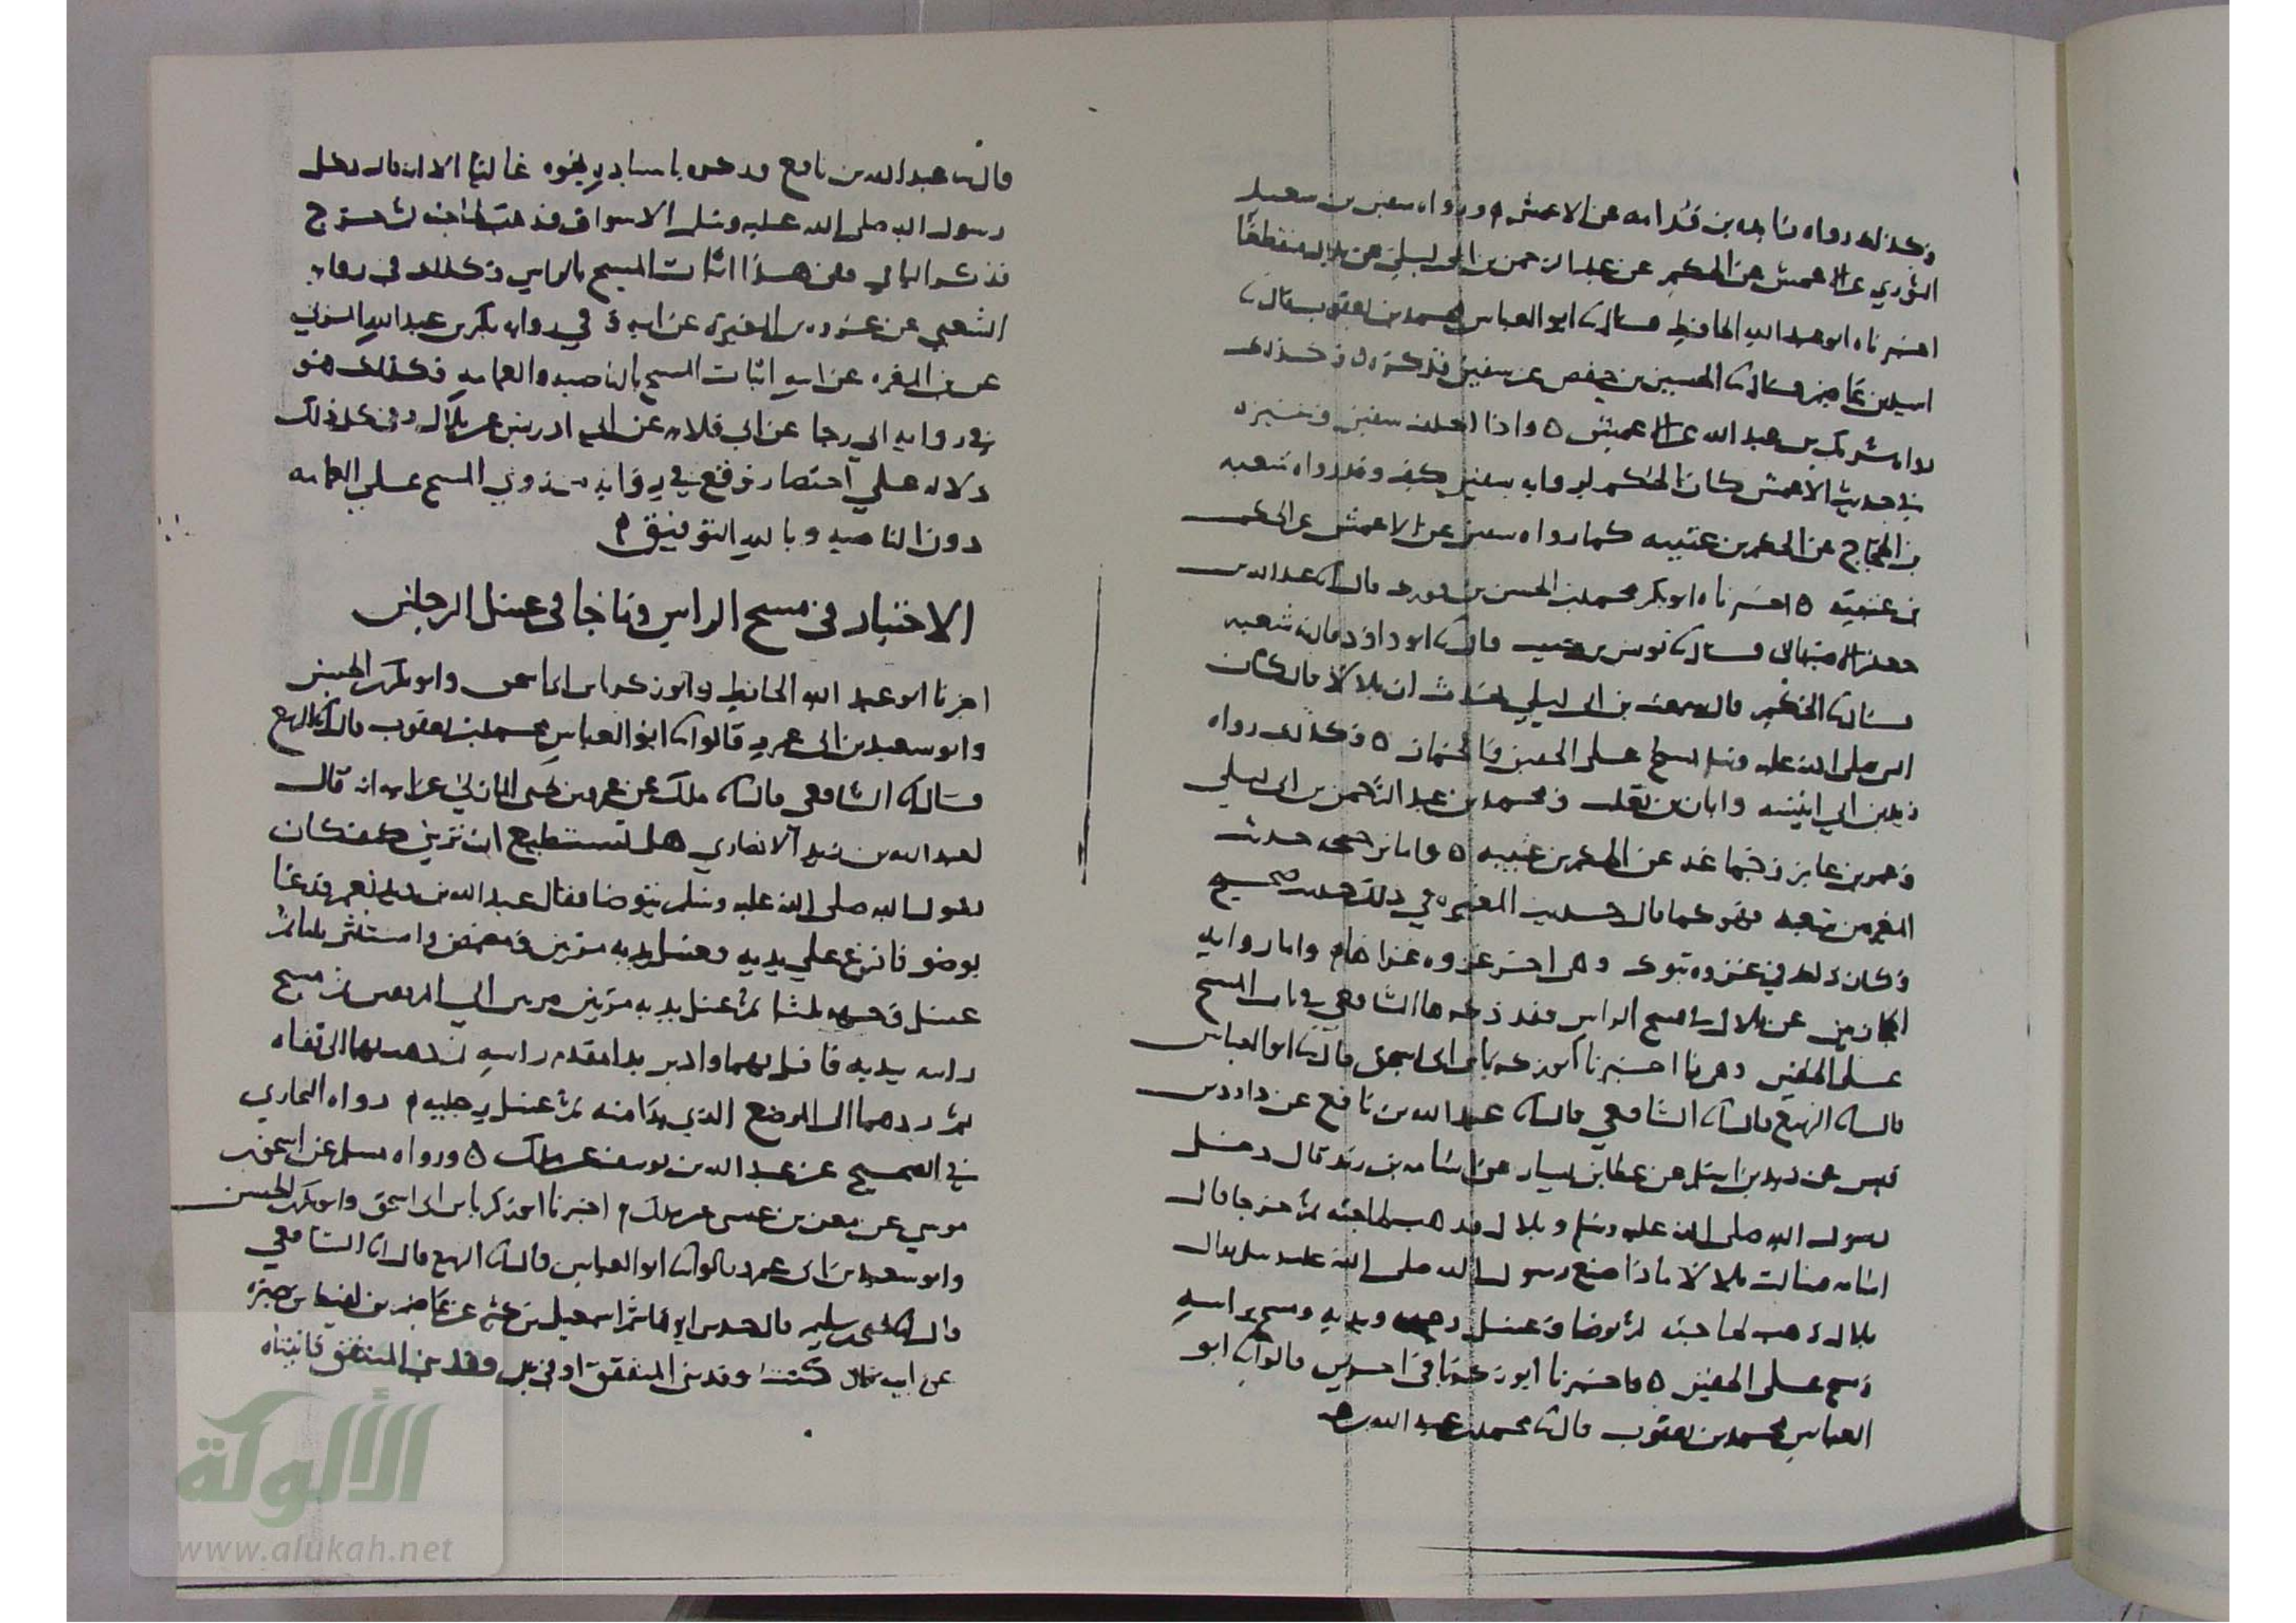 وكذلك رواه زايده بن قدامه عن الاعمش ورواه سفين بن سعيد
الثوري عن الاعمش عن الحكم عن عبد الرحمن بن ابي ليلى عن بلال منقطعا
اخبرناه ابو عبد الله الحافظ قال ابو العباس محمد بن يعقوب قال
اسيد بن عاصم قال الحسين بن حفص عن سفين فذكره وكذلك
رواه شريك بن عبد الله عن الاعمش واذا اختلف سفين وغيره
في حديث الاعمش كان الحكم لرواية سفين كيف وقد رواه شعبه
بن الحجاج عن الحكم بن عتيبه كما رواه سفين عن الاعمش عن الحكم
بن عتيبه اخبرناه ابو بكر محمد بن الحسن بن فورك قال عبد الله بن
جعفر الاصبهاني قال يونس بن حبيب قال ابو داود قال شعبه
قال الحكم قال سمعت بن ابي ليلي يحدث ان بلالا قال كان
النبي صلى الله عليه وسلم يمسح على الخفين والخمار وكذلك رواه
زيد بن ابي انيسه وابان بن تغلب ومحمد بن عبد الرحمن بن ابي ليلي
عن الحكم بن عتيبه واما حديث
المغيره بن شعبه فهو كما قال حديث المغيره في ذلك حديث صحيح
وكان ذلك في غزوه تبوك وهي اخر غزوه غزاها واما رواية
عن بلال في مسح الراس فقد ذكرها الشافعي في باب المسح
على الخفين اخبرنا ابو زكريا بن ابي اسحق قال ابو العباس
قال الربيع قال الشافعي قال عبد الله بن نافع عن داود بن
قيس عن زيد بن اسلم عن عطا بن يسار عن اسامه بن زيد قال دخل
رسول الله صلى الله عليه وسلم وبلال فذهب لحاجته ثم خرجا قال
اسامه فسالت بلالا ماذا صنع رسول الله صلى الله عليه وسلم فقال
بلال ذهب لحاجته ثم توضا فغسل وجهه ويديه ومسح براسه
ومسح على الخفين واخبرنا ابو زكريا في اخرين قالوا ابو
العباس محمد بن يعقوب قال محمد بن عبد الله
قال عبد الله بن نافع فذكره باسناده نحوه غير انه قال دخل
رسول الله صلى الله عليه وسلم الاسواق فذهب لحاجته ثم خرج
فذكر الباقي ففي هذا اثبات المسح بالراس وكذلك في رواية
الشعبي عن عروه بن المغيرة عن ابيه وفي رواية بكر بن عبد الله المزني
عن بن المغيره عن ابيه اثبات المسح بالناصيه والعمامه وكذلك هو
في رواية ابي رجا عن ابي قلابه عن ابي ادريس عن بلال وفي كل ذلك
دلاله على اختصار وقع في رواية من روى المسح على العمامه
دون الناصيه وبالله التوفيق
الاختيار في مسح الراس وما جا في غسل الرجلين
اخبرنا ابو عبد الله الحافظ وابو زكريا بن ابي اسحق وابو بكر بن الحسن
وابو سعيد بن ابي عمرو قالوا ابو العباس محمد بن يعقوب قال الربيع
قال الشافعي قال ملك عن عمرو بن يحيى المازني عن ابيه انه قال
لعبد الله بن زيد الانصاري هل تستطيع ان تريني كيف كان
رسول الله صلى الله عليه وسلم يتوضا فقال عبد الله بن زيد نعم فدعا
بوضو فافرغ على يديه فغسل يديه مرتين ومضمض واستنثر ثلثا ثم
غسل وجهه ثلثا ثم غسل يديه مرتين مرتين الى المرفقين ثم مسح
راسه بيديه فاقبل بهما وادبر بدا بمقدم راسه ثم ذهب بهما الى قفاه
ثم ردهما الى الموضع الذي بدا منه ثم غسل رجليه رواه البخاري
في الصحيح عن عبد الله بن يوسف عن ملك ورواه مسلم عن اسحق بن
موسي عن معن بن عيسى عن ملك اخبرنا ابو زكريا بن ابي اسحق وابو بكر بن الحسن
وابو سعيد بن ابي عمرو قالوا ابو العباس قال الربيع قال الشافعي
قال يحيى بن سليم قال حدثني ابو هاشم اسمعيل بن كثير عن عاصم بن لقيط بن صبره
عن ابيه قال كنت وافد بني المنتفق او في وفد بني المنتفق فاتيناه
الألوكة
www.alukah.net